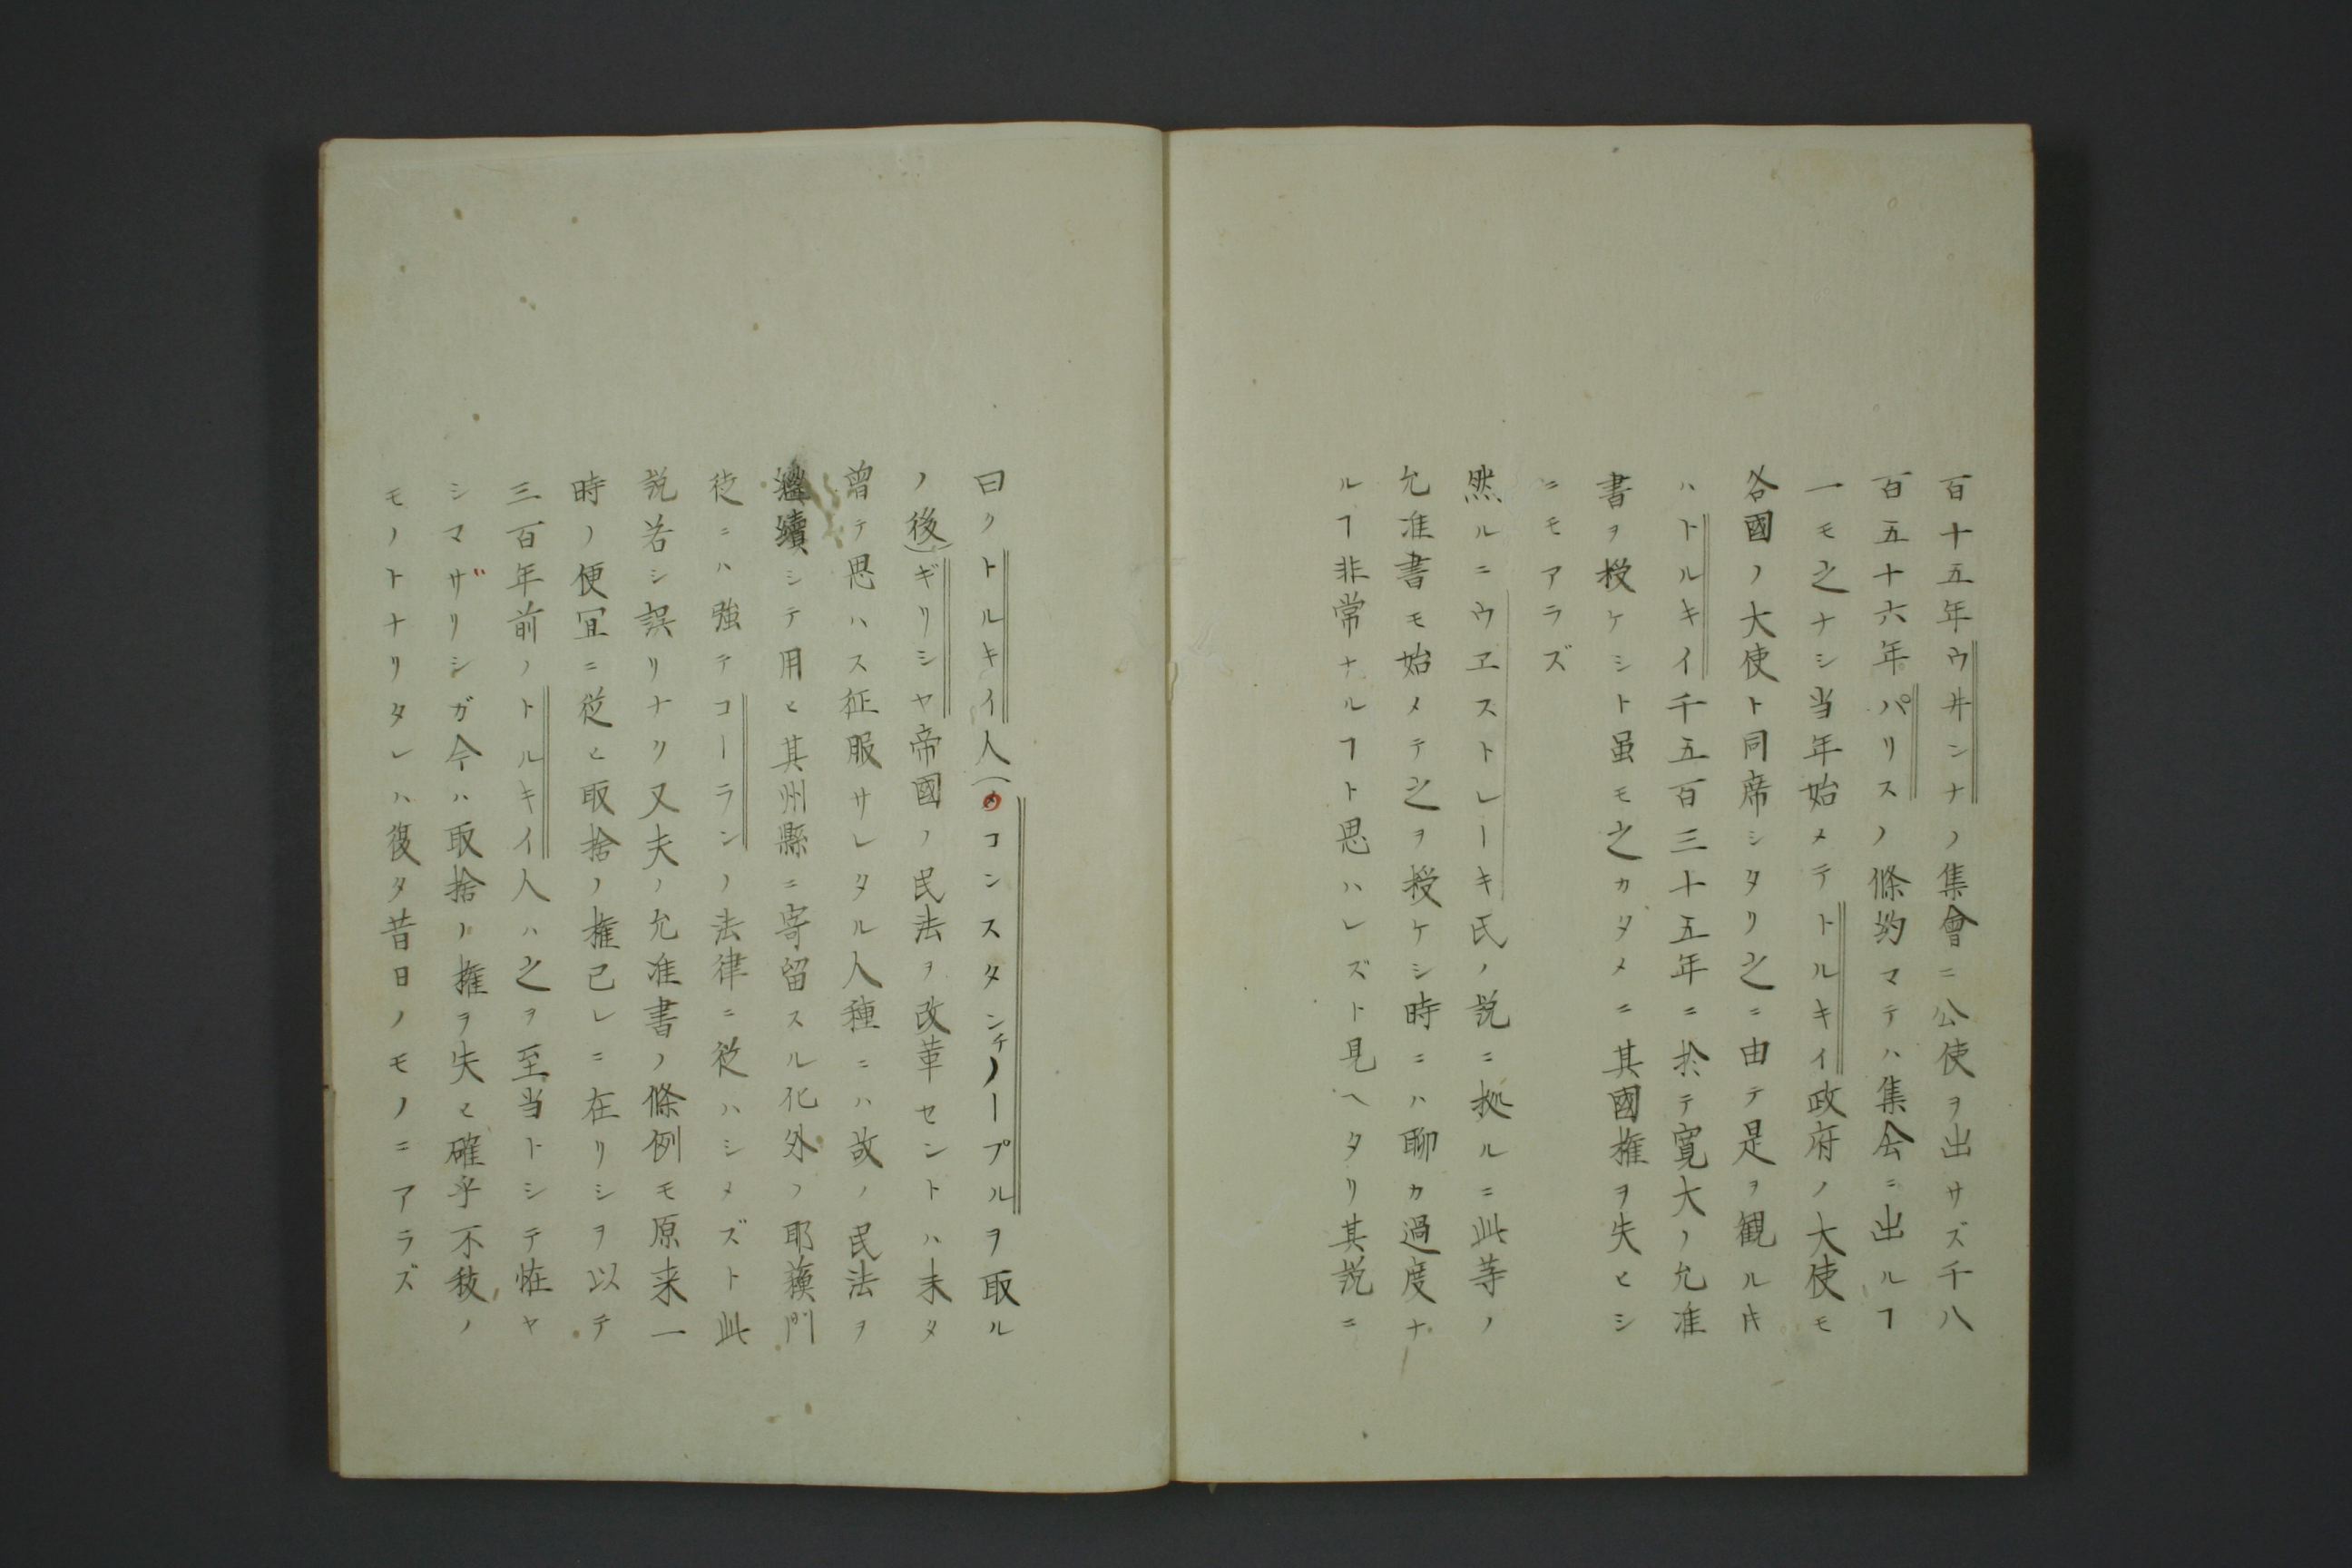 百十五年ウ井ンナノ集會ニ公使ヲ出サズ千八
百五十六年パリスノ條約マテハ集会ニ出ルヿ
一モ之ナシ当年始メテトルキイ政府ノ大使モ
各國ノ大使ト同席シタリ之ニ由テ是ヲ観ルㇴ
ハトルキイ千五百三十五年ニ於テ寛大ノ允准
書ヲ授ケシト虽モ之カタメニ其國権ヲ失ヒシ
ニモアラズ
然ルニウヱストレーキ氏ノ説ニ拠ルニ此等ノ
允准書モ始メテ之ヲ授ケシ時ニハ聊カ過度ナ
ルヿ非常ナルヿト思ハレズト見ヘタリ其説ニ
曰クトルキイ人(コンスタンチノープルヲ取ル
ノ後)ギリシヤ帝國ノ民法ヲ改革セントハ未タ
曽テ思ハス征服サレタル人種ニハ故ノ民法ヲ
繼續シテ用ヒ其州縣ニ寄留スル化外ノ耶蘓門
徒ニハ強テコーランノ法律ニ従ハシメズト此
説若シ誤リナリ又夫ノ允准書ノ條例モ原来一
時ノ便冝ニ従ヒ取捨ノ権己レニ在リシヲ以テ
三百年前ノトルキイ人ハ之ヲ至当トシテ恠ヤ
シマザリシガ今ハ取捨ノ権ヲ失ヒ確乎不抜ノ
モノトナリタレハ復タ昔日ノモノニアラズ